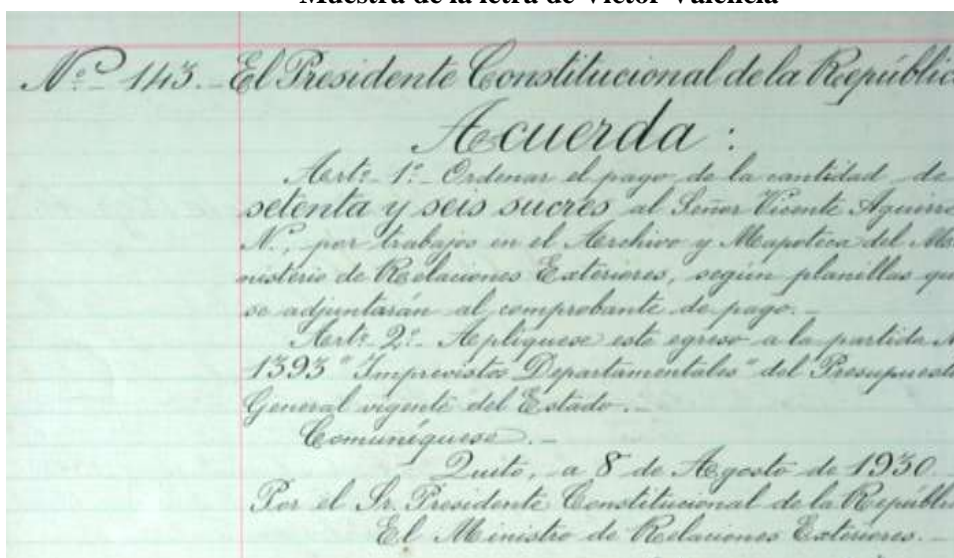 Muestra de la letra de Víctor Valencia
Nº 143.- El Presidente Constitucional de la Repúblic
Acuerda :
Artº 1º- Ordenar el pago de la cantidad de
setenta y seis sucres al Señor Vicente Aguirre
N., por trabajos en el Archivo y Mapoteca del Mi
nisterio de Relaciones Exteriores, según planillas que
se adjuntarán al comprobante de pago.-
Artº 2º- Aplíquese este egreso a la partida N
1393 "Imprevistos Departamentales" del Presupuesto
General vigente del Estado.-
Comuníquese.-
Quito, a 8 de Agosto de 1930
Por el Sr. Presidente Constitucional de la Repúbli
El Ministro de Relaciones Exteriores.-